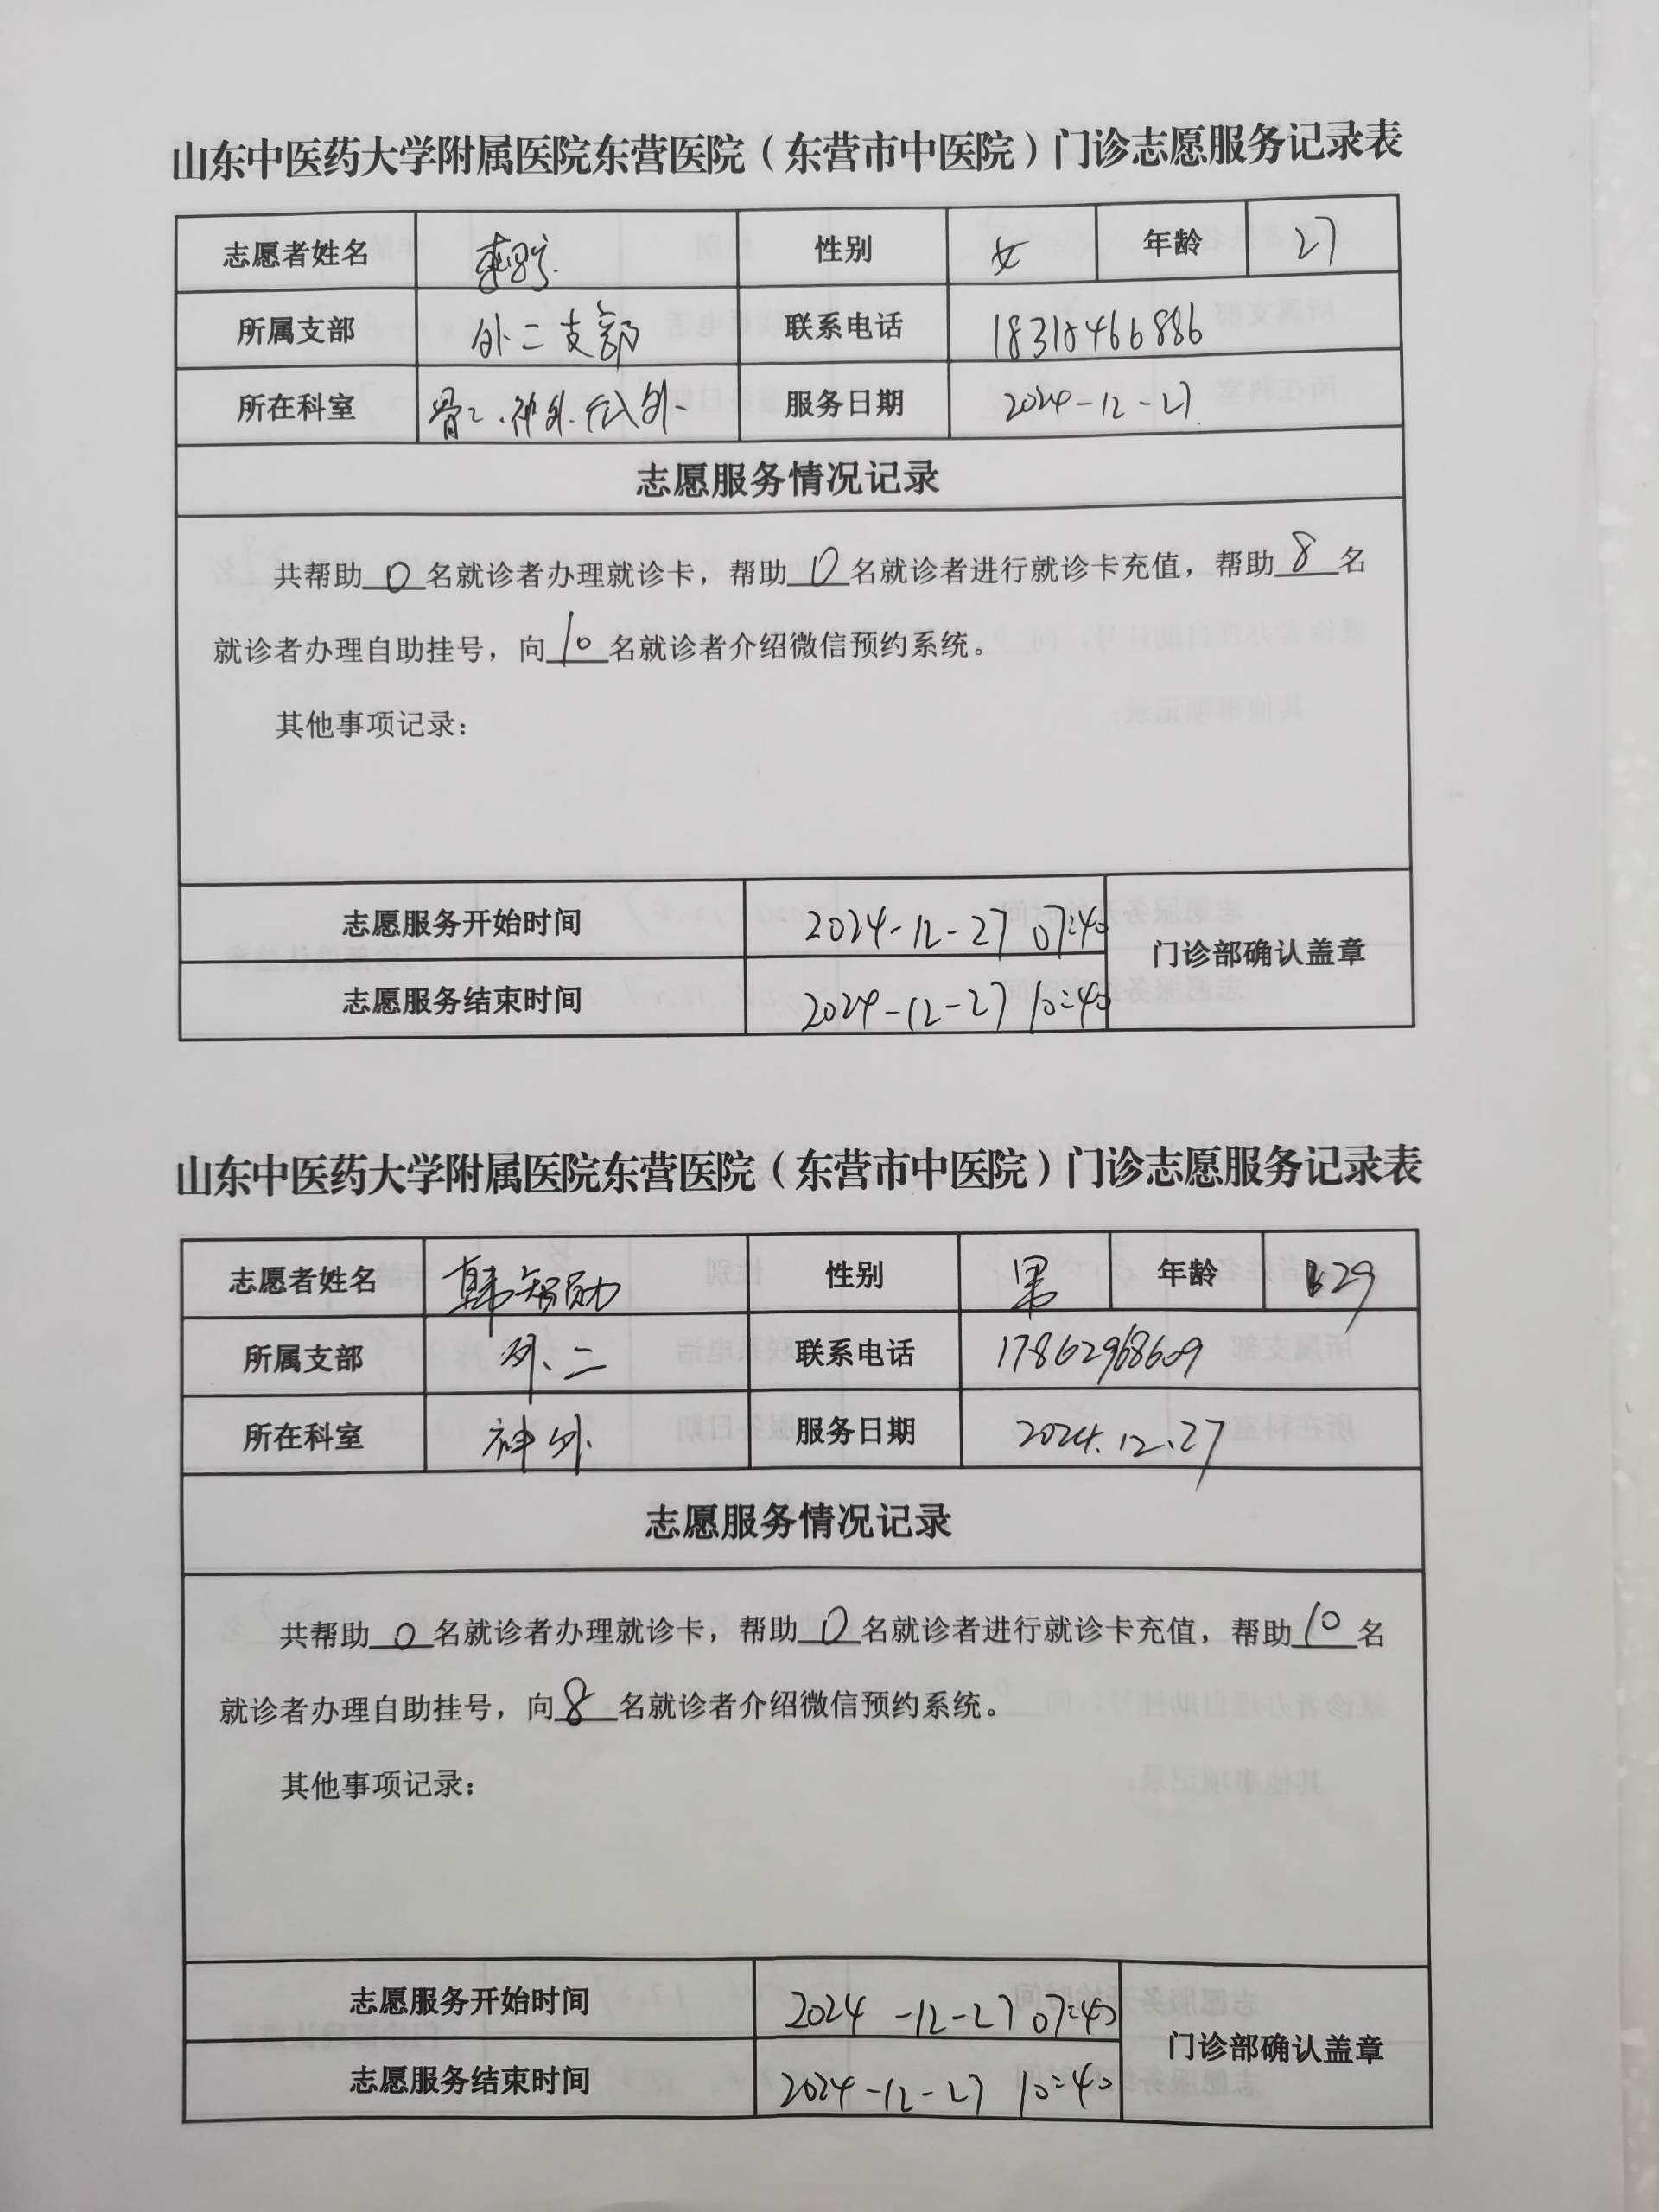 山东中医药大学附属医院东营医院（东营市中医院）门诊志愿服务记录表
志愿者姓名 性别 女 年龄 27
所属支部 外二支部 联系电话 18318466886
所在科室 骨二、神外、 服务日期 2024-12-27
志愿服务情况记录
共帮助0名就诊者办理就诊卡，帮助0名就诊者进行就诊卡充值，帮助8名
就诊者办理自助挂号，向10名就诊者介绍微信预约系统。
其他事项记录：
志愿服务开始时间 2024-12-27 07:40
门诊部确认盖章
志愿服务结束时间 2024-12-27 10:40
山东中医药大学附属医院东营医院（东营市中医院）门诊志愿服务记录表
志愿者姓名 韩智勋 性别 男 年龄 29
所属支部 外、二 联系电话 17862968609
所在科室 神外 服务日期 2024.12.27
志愿服务情况记录
共帮助0名就诊者办理就诊卡，帮助0名就诊者进行就诊卡充值，帮助10名
就诊者办理自助挂号，向8名就诊者介绍微信预约系统。
其他事项记录：
志愿服务开始时间 2024-12-27 07:40
门诊部确认盖章
志愿服务结束时间 2024-12-27 10:40